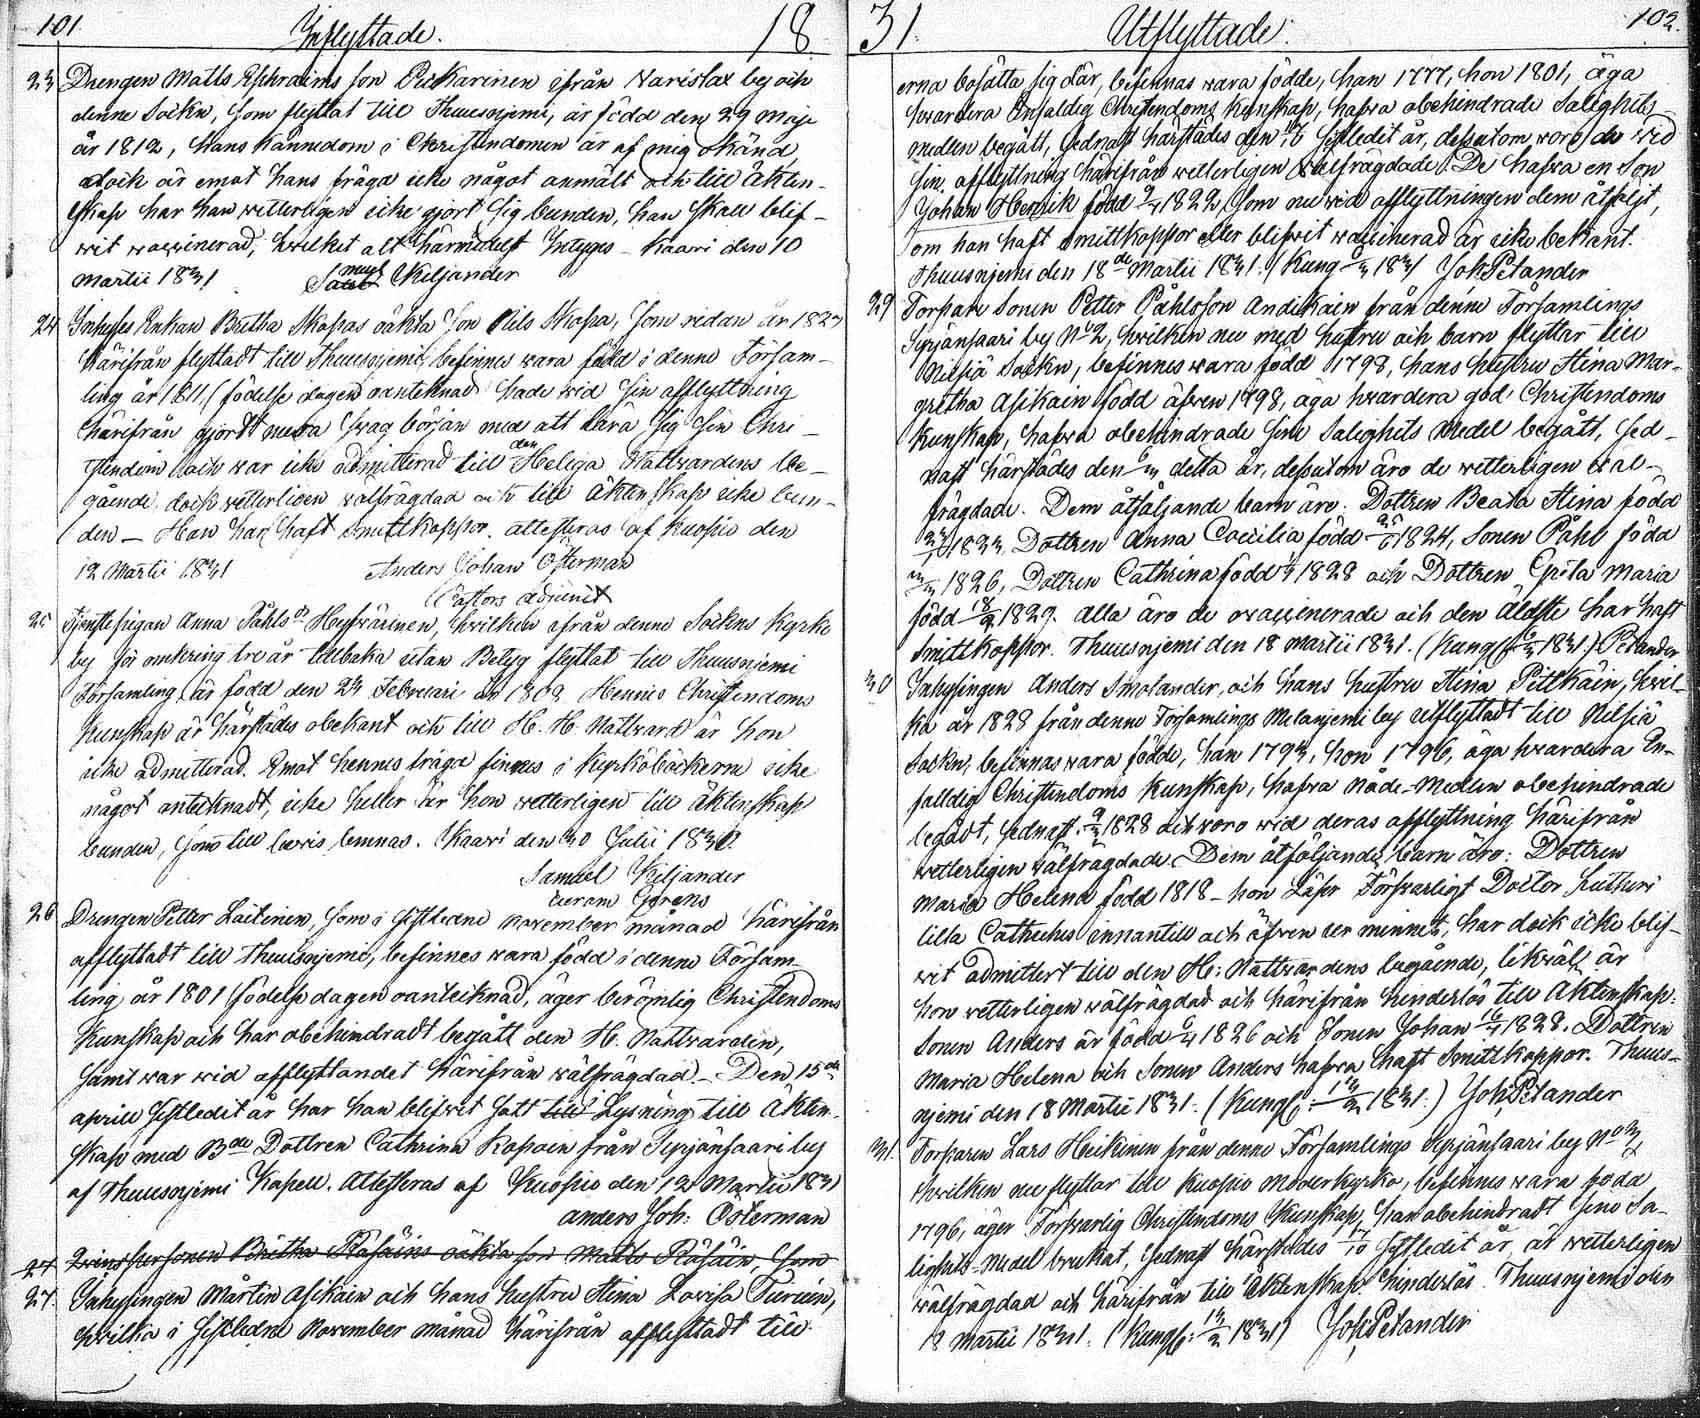 101 Inflyttade. 18
23 Drengen Matts Ephraims son Puckarinen ifrån Varislax by och
denne Sockn, som flyttat till Thuusnjemi, är född den 29 Maje
år 1812, hans kännedom i Christendomen är af mig okänd,
dock är emot hans fräga icke något anmält och till Äkten-
skap har han wetterligen icke gjort sig bunden, han skall blif-
wit waccinerad, hwilket alt härmedelst Intyges - Kaavi den 10
Martii 1831 Samuel Kiljander
24 Inhyses Enkan Bretha Skopas oäkta son Nils Skopa, som redan år 1827
härifrån flyttadt till Thuusnjemi, befinnes wara född i denne Försam-
ling år 1811, (födelse dagen oanteknad) hade wid sin afflyttning
härifrån gjordt nera swag början med att lära sig sin Chri-
stendom och war icke admitterad till den Heliga Nattwardens be-
gående, dock wetterligen wälfrägdad och till Äktenskap icke bun-
den - Han har haft smittkoppor. attesteras af Kuopio den
12 Martii 1831 Anders Johan Österman
Pastors adjunct
25 Tjenstepigan Anna Påhls dr Hyfwärinen, hwilken ifrån denne Sockns Kyrko
by för omkring tre år tillbaka utan Betyg flyttat till Thuusnjemi
Församling, är född den 23 Februari år 1809 Hennes Christendoms
kunskap är härstädes obekant och till H. H. Nattward är hon
icke admitterad. Emot hennes fräga finnes i Kyrkoböckerne icke
något antecknadt, icke heller är hon wetterligen till Äktenskap
bunden, som till bewis lemnas. Kaavi den 30 Julii 1830
Samuel Kiljander
curam Gerens
26 Drengen Petter Laitinen, som i sistledne November månad härifrån
afflyttadt till Thuusnjemi, befinnes wara född i denne Försam-
ling år 1801 (födelse dagen oanteiknad, äger berömlig Christendoms
kunskap och har obehindradt begått den H. Nattwarden,
samt war wid afflyttandet härifrån wälfrägdad. - Den 15de
april sistledit år har han blifwit satt till Lysning till Äkten-
skap med Bde Dottren Cathrina Kapain från Syrjänsaari by
af Thuusnjemi Kapell. Attesteras af Kuopio den 12 Martii 1831
Anders Joh: Österman
27 Qwinspersonen Bretha Räsäins oäkta son Matts Räsäin, som
27. Inhysingen Mårtin Asikain och hans hustru Stina Lovisa Turuin,
hwilka i sistledne November månad härifrån afflyttadt till
31. Utflyttade. 102.
erna bosätta sig där, befinnas wara födde, han 1777, hon 1801, äga
hwardera Enfaldig Christendoms kunskap, hafwa obehindrade Salighets-
medlen begått, sednast härstädes den sistledit år, dessutom woro de wid
sin afflyttning härifrån wetterligen wälfrägdade. De hafwa en Son
Johan Henrik född 1822, som nu wid afflyttningen dem åtföljt,
om han haft smittkoppor eller blifwit waccinerad är icke bekant.
Thuusnjemi den 18de Martii 1831. (Kung 1831) Joh Petander
29 Torpare Sonen Petter Påhlsson Andikain från denne Församlings
Syrjänsaari by No 2, hwilken nu med hustru och barn flyttar till
Nilsiä Sockn, befinnes wara född 1798, hans hustru Stina Mar-
gretha Asikain född äfwen 1798, äga hwardera god Christendoms
kunskap, hafwa obehindrade sine Salighets Medel begått, sed-
nast härstädes den detta år, dessutom äro de wetterligen wäl-
frägdade. Dem åtföljande barn äro: Dottren Beata Stina född
1822, Dottren Anna Caecilia född 1824, Sonen Påhl född
1826, Dottren Cathrina född 1828 och Dottren Greta Maria
född 18 1829. Alla äro de owaccinerade och den äldste har haft
smittkoppor. Thuusnjemi den 18 Martii 1831. (Kungs 1831.) Petander
30 Inhysingen Anders Smolander, och hans hustru Stina Pitkäin, hwil-
ka år 1828 från denne Församlings Melanjemi by utflyttadt till Nilsiä
Sockn, befinnas wara födde, han 1793, hon 1796, äga hwardera En-
faldig Christendoms kunskap, hafwa Nåde-Medlen obehindrade
begådt, sednast 1828 och woro wid deras afflyttning härifrån
wetterligen wälfrägdade. Dem åtföljande barn äro: Dottren
Maria Helena född 1818 - hon Läser Förswarligt Doctor Lutheri
lilla Cathechis innantill och äfwen ur minnet, har dock icke blif-
wit admitterd till den H: Nattwardens begående, likwäl är
hon wetterligen wälfrägdad och härifrån hinderlös till Äktenskap.
Sonen Anders är född 1826 och Sonen Johan 1828. Dottren
Maria Helena och Sonen Anders hafwa haft Smittkoppor. Thuus-
njemi den 18 Martii 1831. (Kungs: 1831.) Joh Petander
31. Torparen Lars Heikinen från denne Församlings Syrjänsaari by No 3,
hwilken nu flyttar till Kuopio Moderkyrko, befinnes wara född
1796, äger Förswarlig Christendoms kunskap, har obehindradt sine Sa-
lighets-Medel brukat, sednast härstädes sistledit år, är wetterligen
wälfrägdad och härifrån till Äktenskap hinderlös. Thuusnjemi den
18 Martii 1831. (Kungs: 1831) Joh Petander